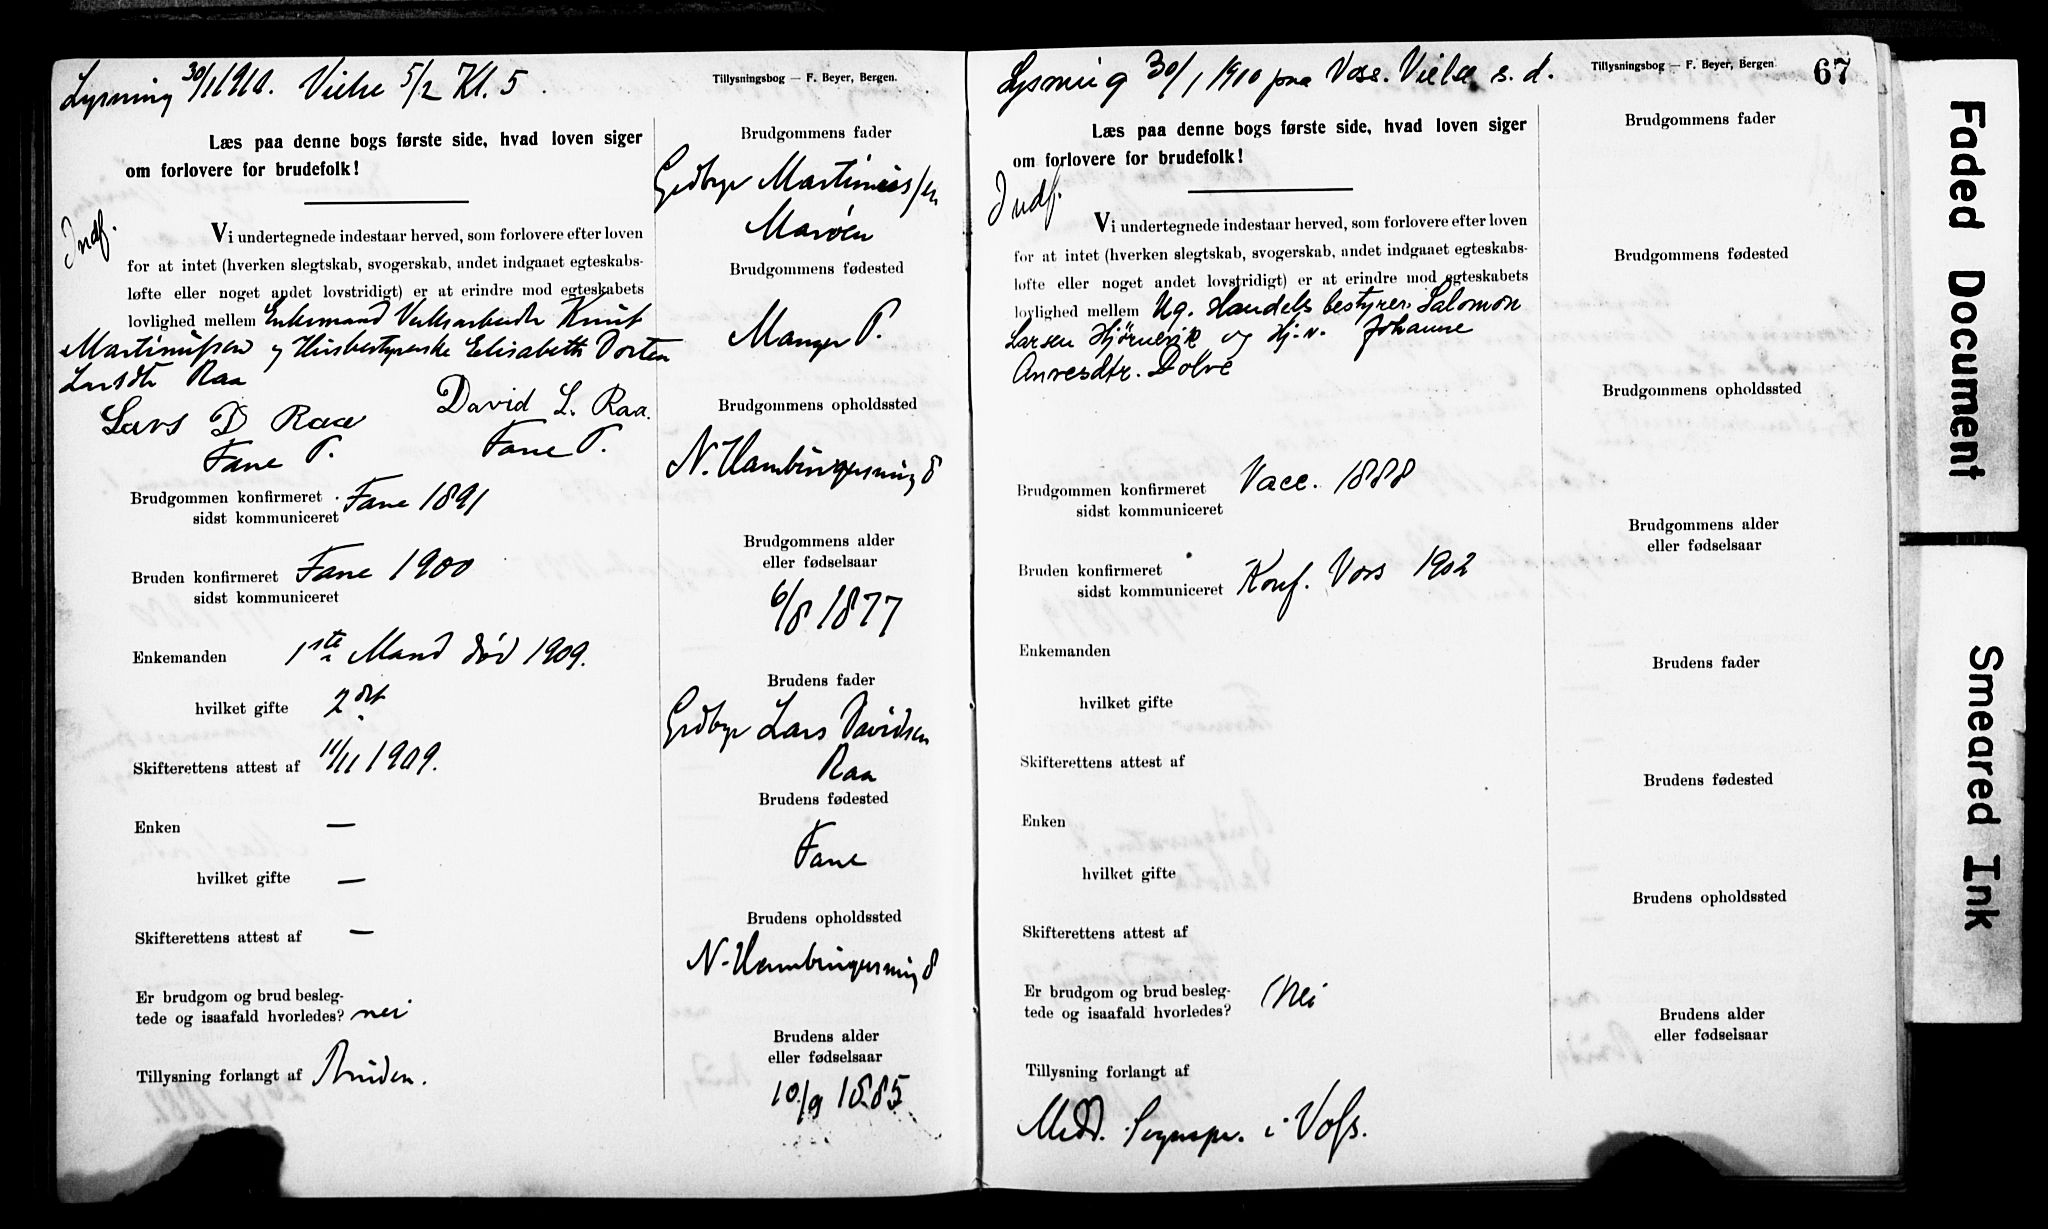 Lysning 30/1 1910. Vielse 5/2 Kl. 5
Tillysningsbog — F. Beyer, Bergen.
Læs paa denne bogs første side, hvad loven siger
om forlovere for brudefolk!
Indf.
Vi undertegnede indestaar herved, som forlovere efter loven
for at intet (hverken slegtskab, svogerskab, andet indgaaet egteskabs-
løfte eller noget andet lovstridigt) er at erindre mod egteskabets
lovlighed mellem Enkemand Verksarbeider Knut
Martinussen og Husbestyrerske Elisabeth Dortea
Larsdtr Raa
Lars D Raa David L. Raa.
Fane P. Fane P.
Brudgommen konfirmeret Fane 1891
sidst kommuniceret
Bruden konfirmeret Fane 1900
sidst kommuniceret
Enkemanden 1ste Mand død 1909.
hvilket gifte 2det
Skifterettens attest af 11/11 1909.
Enken —
hvilket gifte —
Skifterettens attest af —
Er brudgom og brud besleg-
tede og isaafald hvorledes? nei
Tillysning forlangt af Bruden.
Brudgommens fader
Grdbr Martinussen
Marøen
Brudgommens fødested
Manger P.
Brudgommens opholdssted
8
Brudgommens alder
eller fødselsaar
6/8 1877
Brudens fader
Grdbr Lars Davidsen
Raa
Brudens fødested
Fane
Brudens opholdssted
8
Brudens alder
eller fødselsaar
10/9 1885
Lysning 30/1 1910 paa Voss. Vielse s. d.
Tillysningsbog — F. Beyer, Bergen
67
Læs paa denne bogs første side, hvad loven siger
om forlovere for brudefolk!
Indf.
Vi undertegnede indestaar herved, som forlovere efter loven
for at intet (hverken slegtskab, svogerskab, andet indgaaet egteskabs-
løfte eller noget andet lovstridigt) er at erindre mod egteskabets
lovlighed mellem Ug. Handelsbestyrer Salomon
Larsen Hjørnevik og Hj.v. Johanne
Anvesdtr. Dolve
Brudgommen konfirmeret Vacc. 1888
sidst kommuniceret
Bruden konfirmeret
sidst kommuniceret Konf. Vors 1902
Enkemanden
hvilket gifte
Skifterettens attest af
Enken
hvilket gifte
Skifterettens attest af
Er brudgom og brud besleg-
tede og isaafald hvorledes? Nei
Tillysning forlangt af
Medd. Sognepr. i Voss.
Brudgommens fader
Brudgommens fødested
Brudgommens opholdssted
Brudgommens alder
eller fødselsaar
Brudens fader
Brudens fødested
Brudens opholdssted
Brudens alder
eller fødselsaar
Faded Document
Smeared Ink